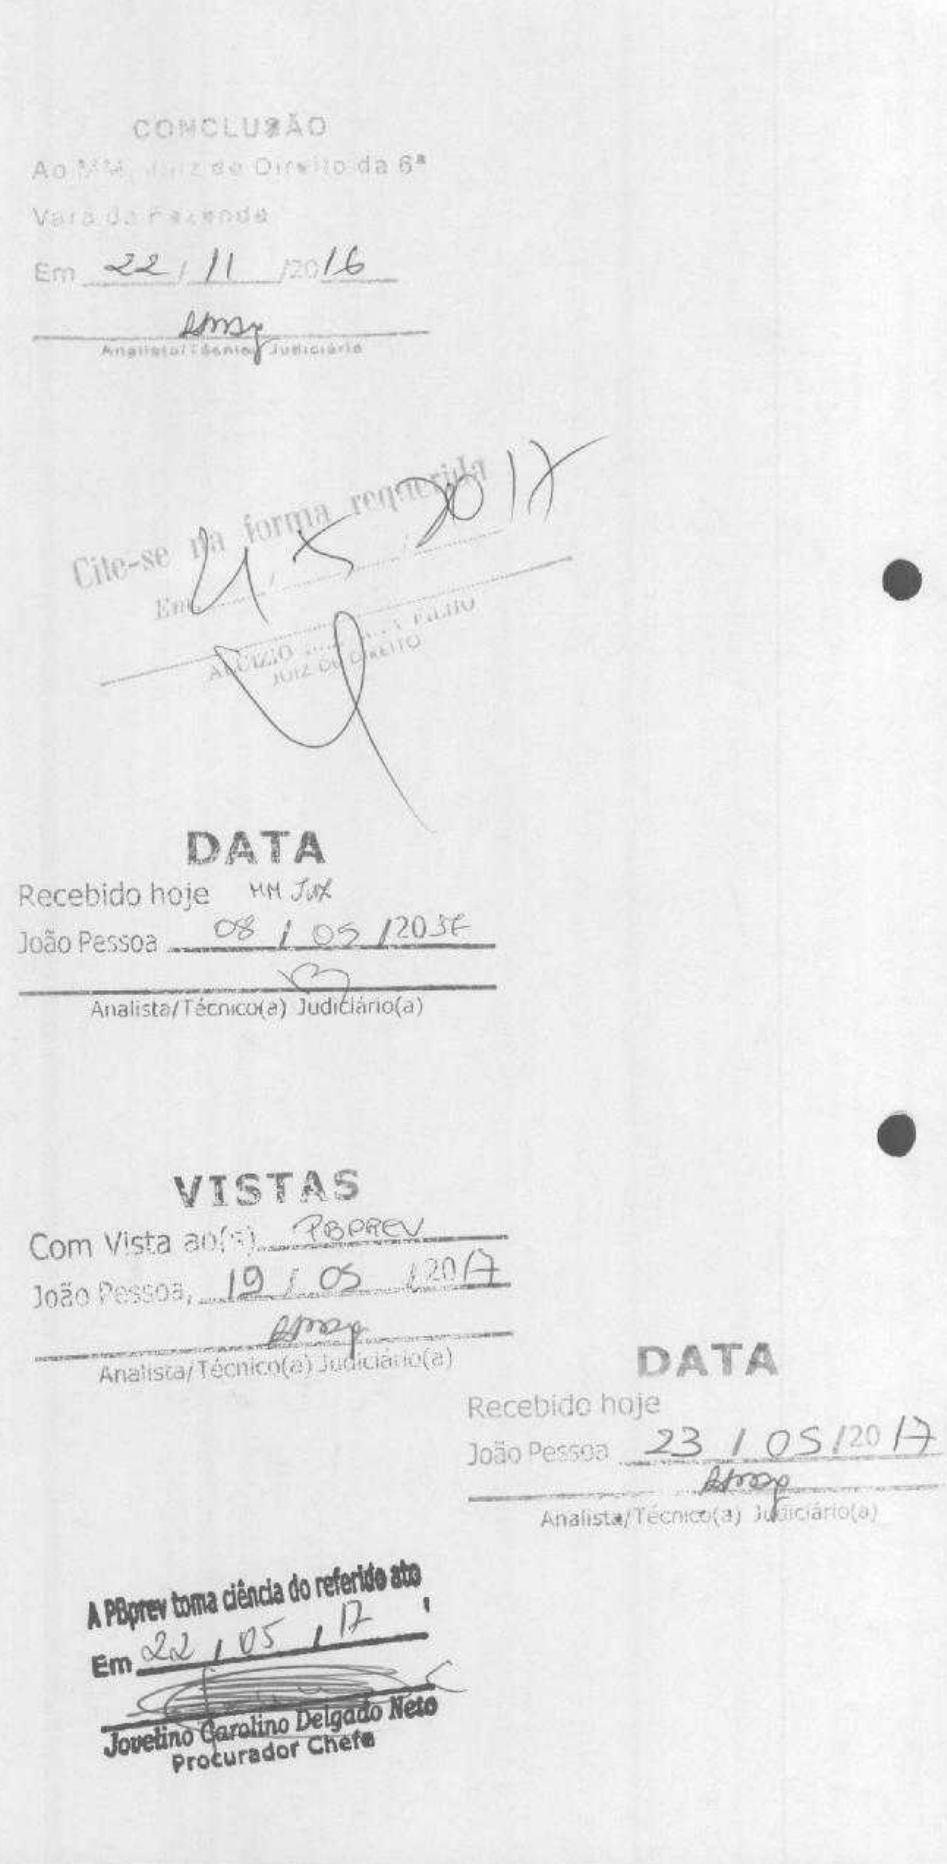 CONCLUSÃO
Ao MM. Juiz de Direito da 6ª
Vara da Fazenda
Em 22 / 11 /2016
Analista/Técnico Judiciário
Cite-se na forma requerida
Em 4 / 5 / 2017
ALUIZIO FILHO
JUIZ DE DIREITO
DATA
Recebido hoje MM Juiz
João Pessoa 08 / 05 /2017
Analista/Técnico(a) Judiciário(a)
VISTAS
Com Vista ao(s) PBPREV
João Pessoa, 19 / 05 /2017
Analista/Técnico(a) Judiciário(a)
DATA
Recebido hoje
João Pessoa 23 / 05 /2017
Analista/Técnico(a) Judiciário(a)
A PBprev toma ciência do referido ato
Em 22 / 05 / 17
Jovelino Carolino Delgado Neto
Procurador Chefe